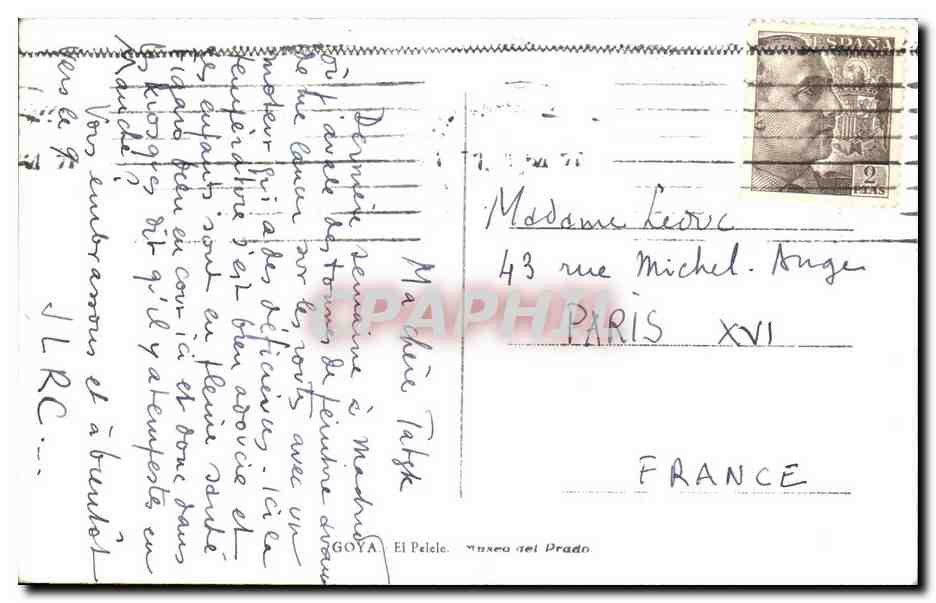 Ma chère Tatyk
Dernière semaine à Madrid
où j'avale des tonnes de peinture avant
de me lancer sur les routes avec un
moteur qui a des déficiences. Ici la
température s'est bien adoucie et
les enfants sont en pleine santé
Figaro bien en cour ici et donc dans
les kiosques dit qu'il y a tempêtes en
Manche
Vous embrassons et à bientôt
vers le 9.
JLRC...
ESPAÑA
2
PTAS
Madame Leduc
43 rue Michel. Ange
PARIS XVI
FRANCE
CPAPHIL
GOYA. El Pelele. Museo del Prado